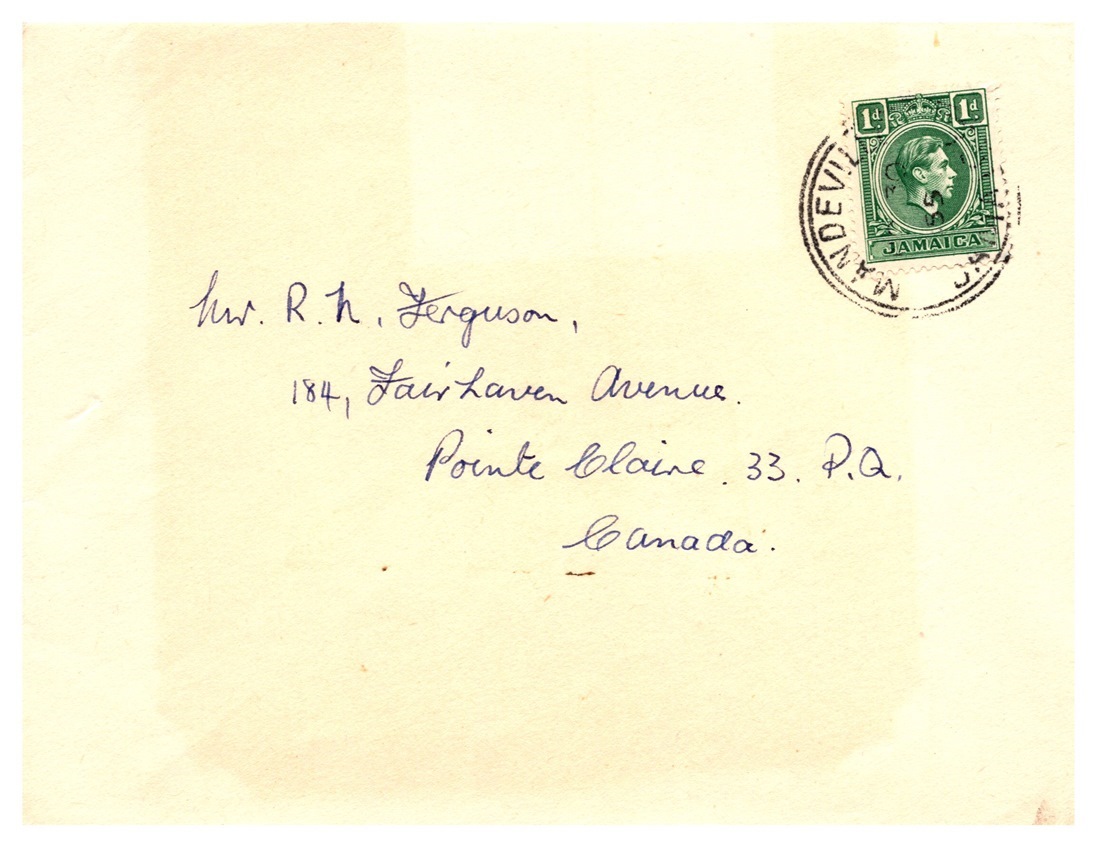 1d 1d
JAMAICA
MANDEVIL
30
55
JAMAICA
Mr. R. N. Ferguson,
184, Fairhaven Avenue.
Pointe Claire. 33. P.Q.
Canada.